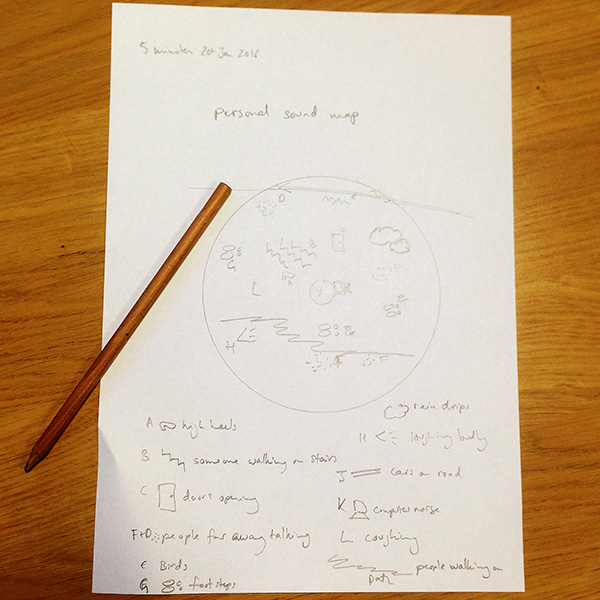 5 minutes 20th Jan 2016
personal sound map
D
E
C
B
G
F
A
K
G
L
G
H
F
F
A high heels
B someone walking on stairs
C doors opening
F+D people far away talking
E Birds
G footsteps
rain drips
H laughing loudly
J cars on road
K computer noise
L coughing
people walking on
path